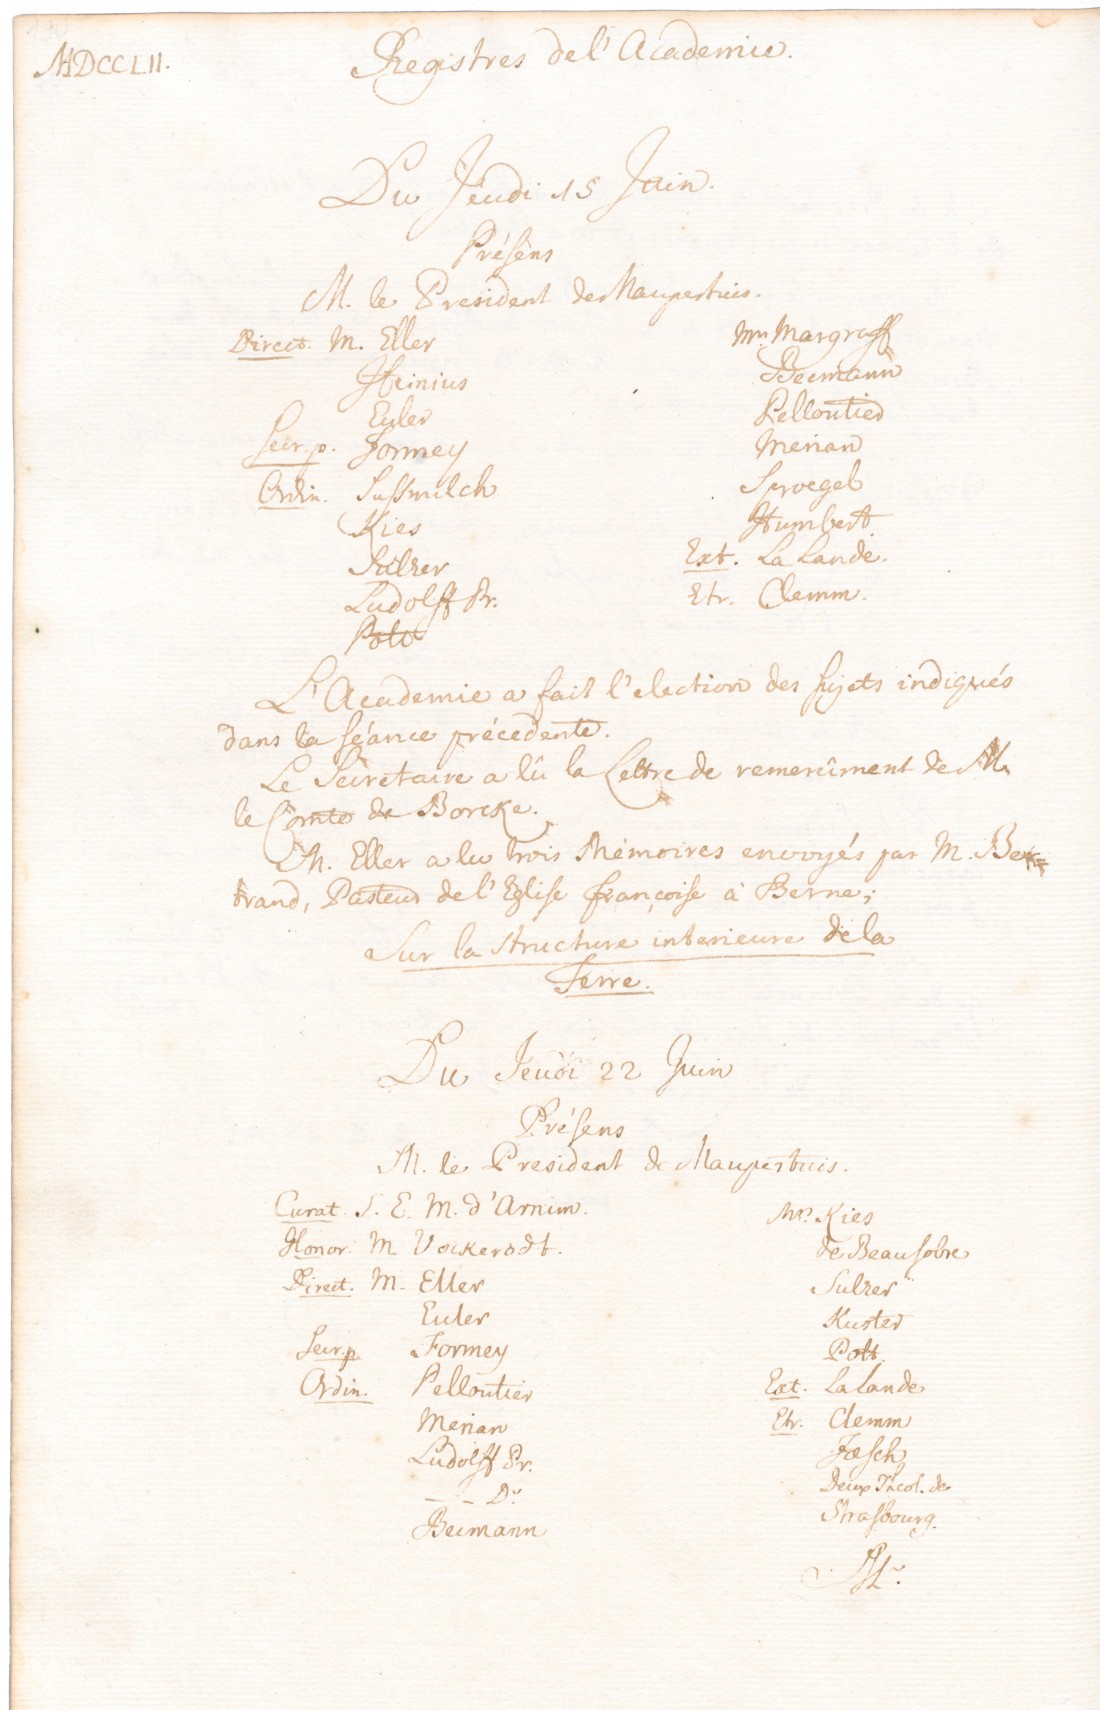 MDCCLII.
Registres de l'Academie.
Du Jeudi 15 Juin.
Présens
M. le President de Maupertuis.
Direct. M. Eller
Heinius
Euler
Secr. p. Formey
Ordin. Sussmilch
Kies
Sulzer
Ludolff Pr.
Pott
Mrs. Margraff
Becmann
Pelloutier
Merian
Sproegel
Humbert.
Ext. La Lande.
Etr. Clemm.
L'Academie a fait l'election des sujets indiqués
dans la séance précedente.
Le Secretaire a lû la Lettre de remercîment de M.
le Comte de Borcke.
M. Eller a lu trois Mémoires envoyés par M. Ber=
trand, Pasteur de l'Eglise françoise à Berne;
Sur la structure interieure de la
Terre.
Du Jeudi 22 Juin
Présens
M. le President de Maupertuis.
Curat. S. E. M. d'Arnim.
Honor. M Vockerodt.
Direct. M. Eller
Euler
Secr. p. Formey
Ordin. Pelloutier
Merian
Ludolff Pr.
— — Dr
Becmann
Mrs. Kies
de Beausobre
Sulzer
Kuster
Pott.
Ext. La Lande
Etr. Clemm
Jæsch
Deux Theol. de
Strasbourg.